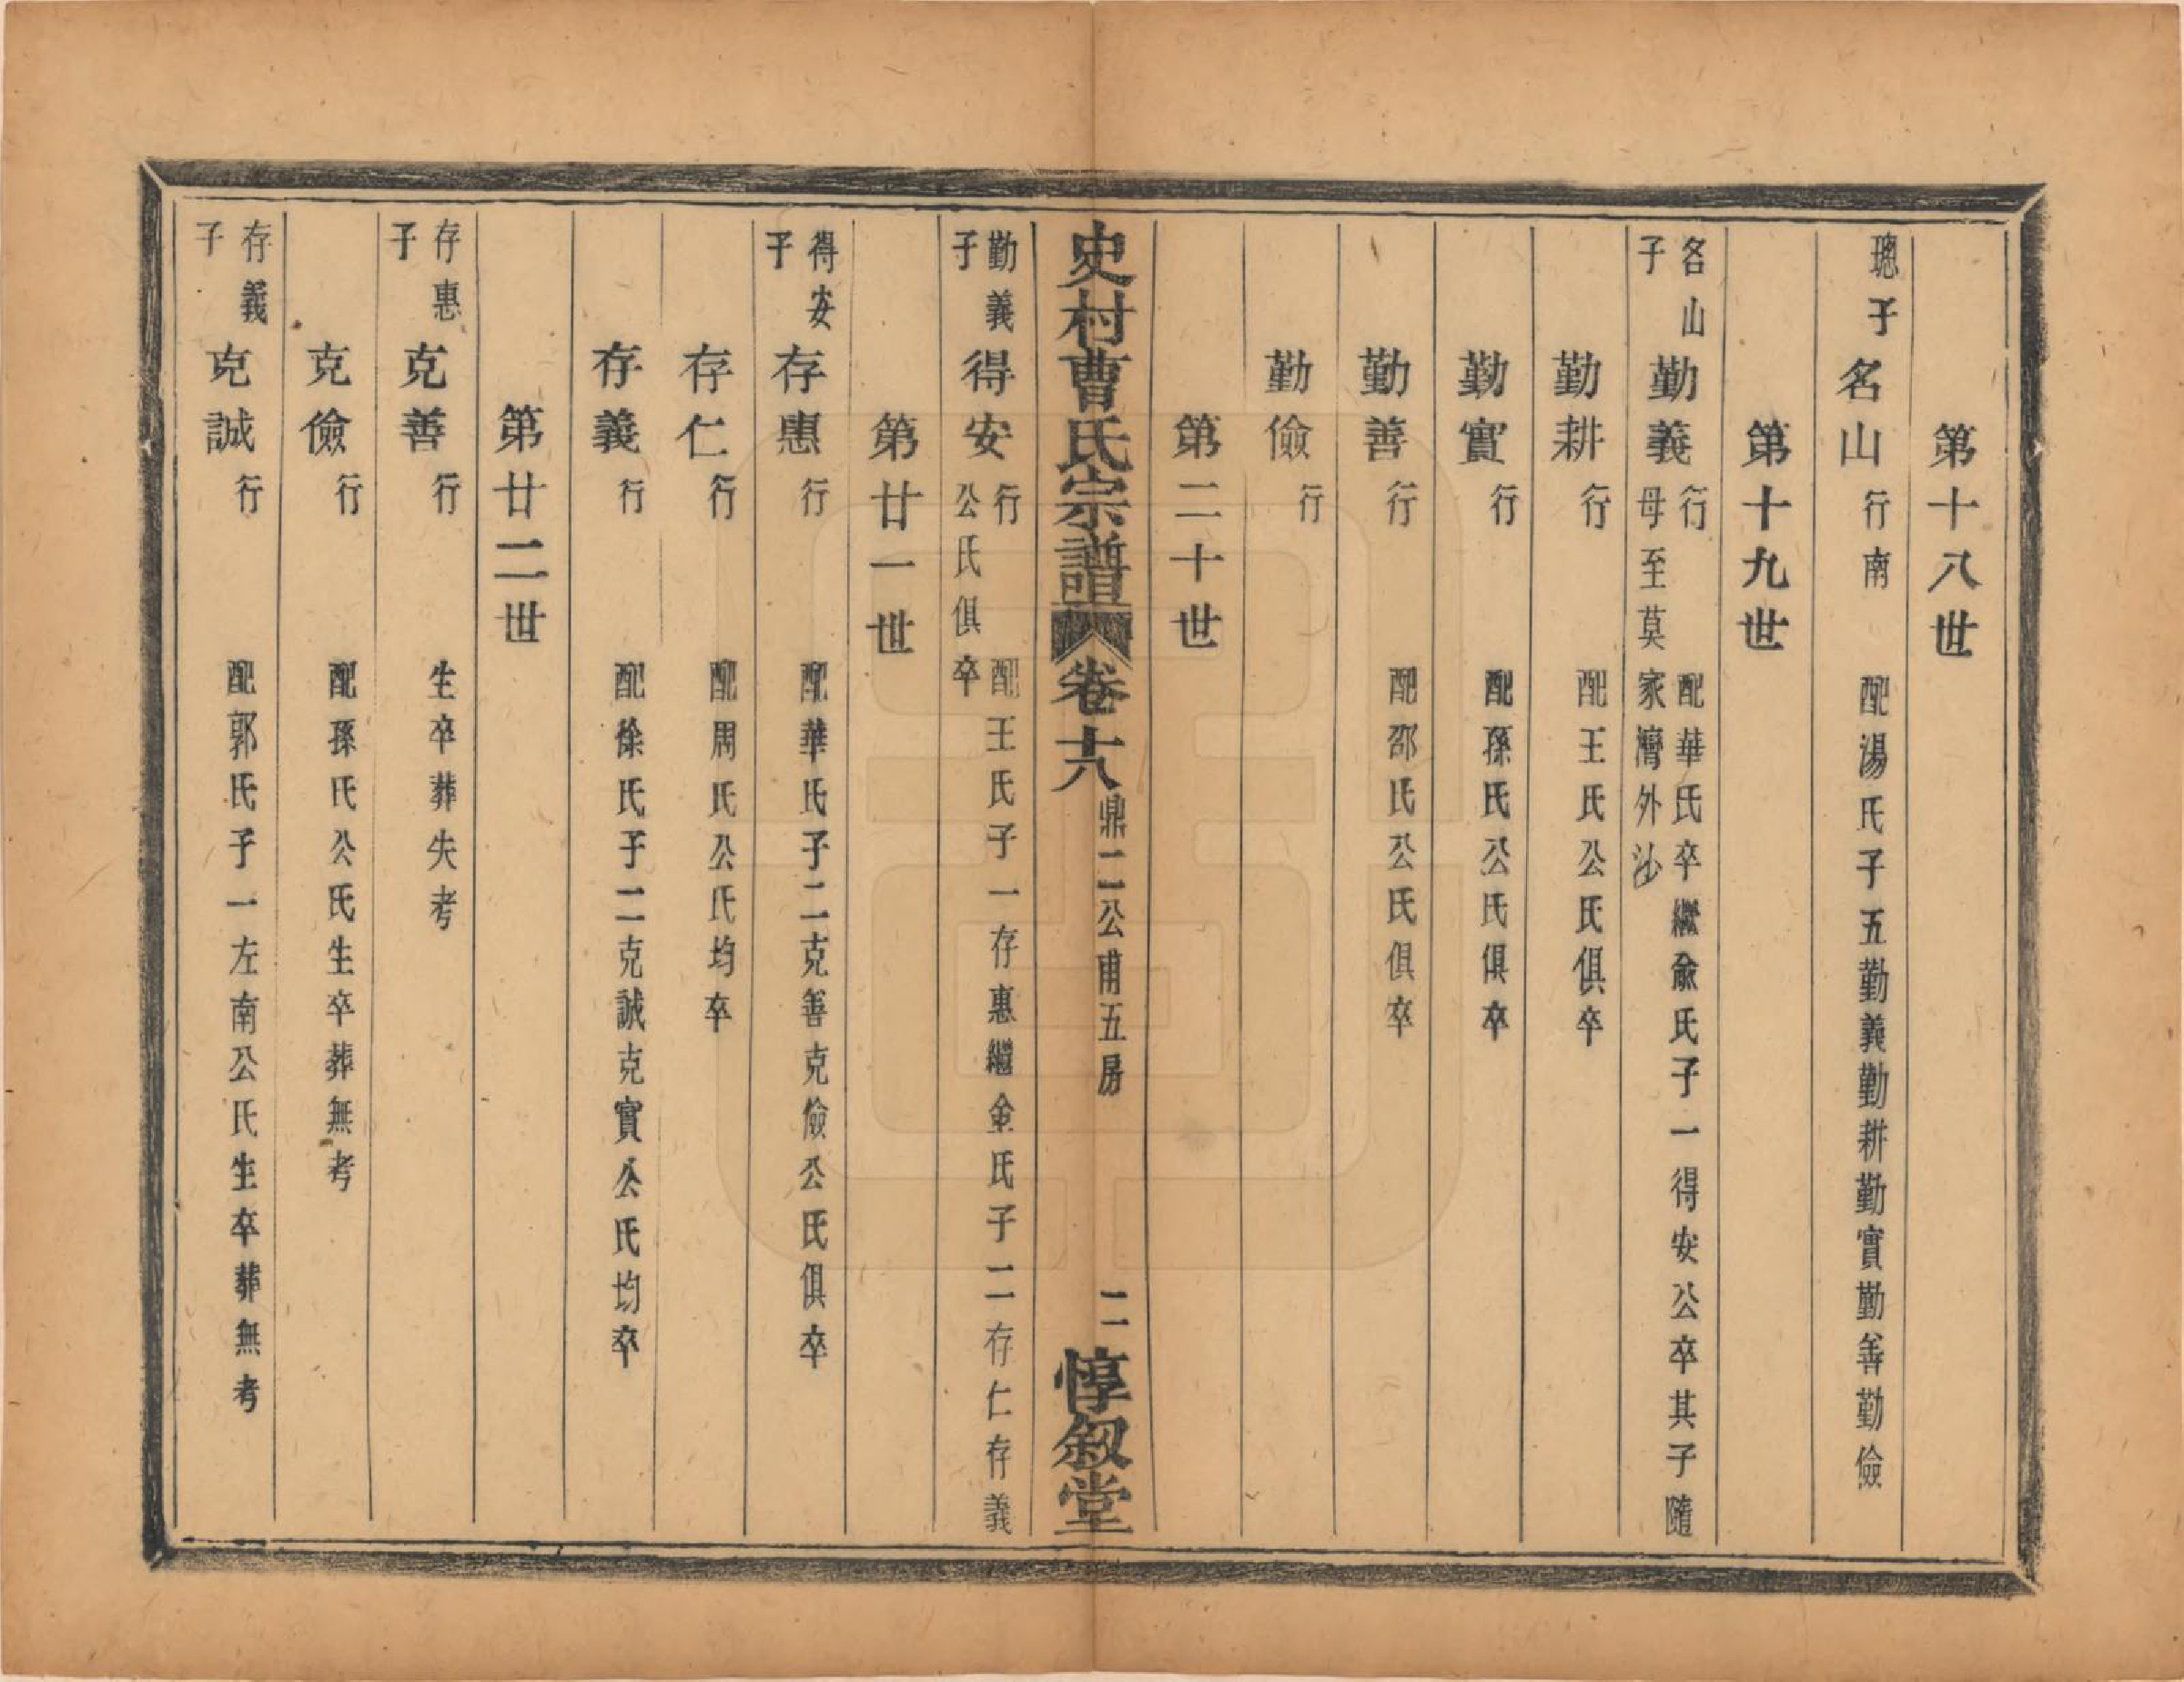 第十八世
璁子 名山 行南 配湯氏子五勤義勤耕勤實勤善勤儉
第十九世
名山子 勤義 行 配華氏卒繼兪氏子一得安公卒其子隨
母至莫家灣外沙
勤耕 行 配王氏公氏俱卒
勤實 行 配孫氏公氏俱卒
勤善 行 配邵氏公氏俱卒
勤儉 行
第二十世
史村曹氏宗譜 卷十八 鼎二公甫五房 二 惇叙堂
勤義子 得安 行 配王氏子一存惠繼金氏子二存仁存義
公氏俱卒
第廿一世
得安子 存惠 行 配華氏子二克善克儉公氏俱卒
存仁 行 配周氏公氏均卒
存義 行 配徐氏子二克誠克實公氏均卒
第廿二世
存惠子 克善 行 生卒葬失考
克儉 行 配孫氏公氏生卒葬無考
存義子 克誠 行 配郭氏子一左南公氏生卒葬無考